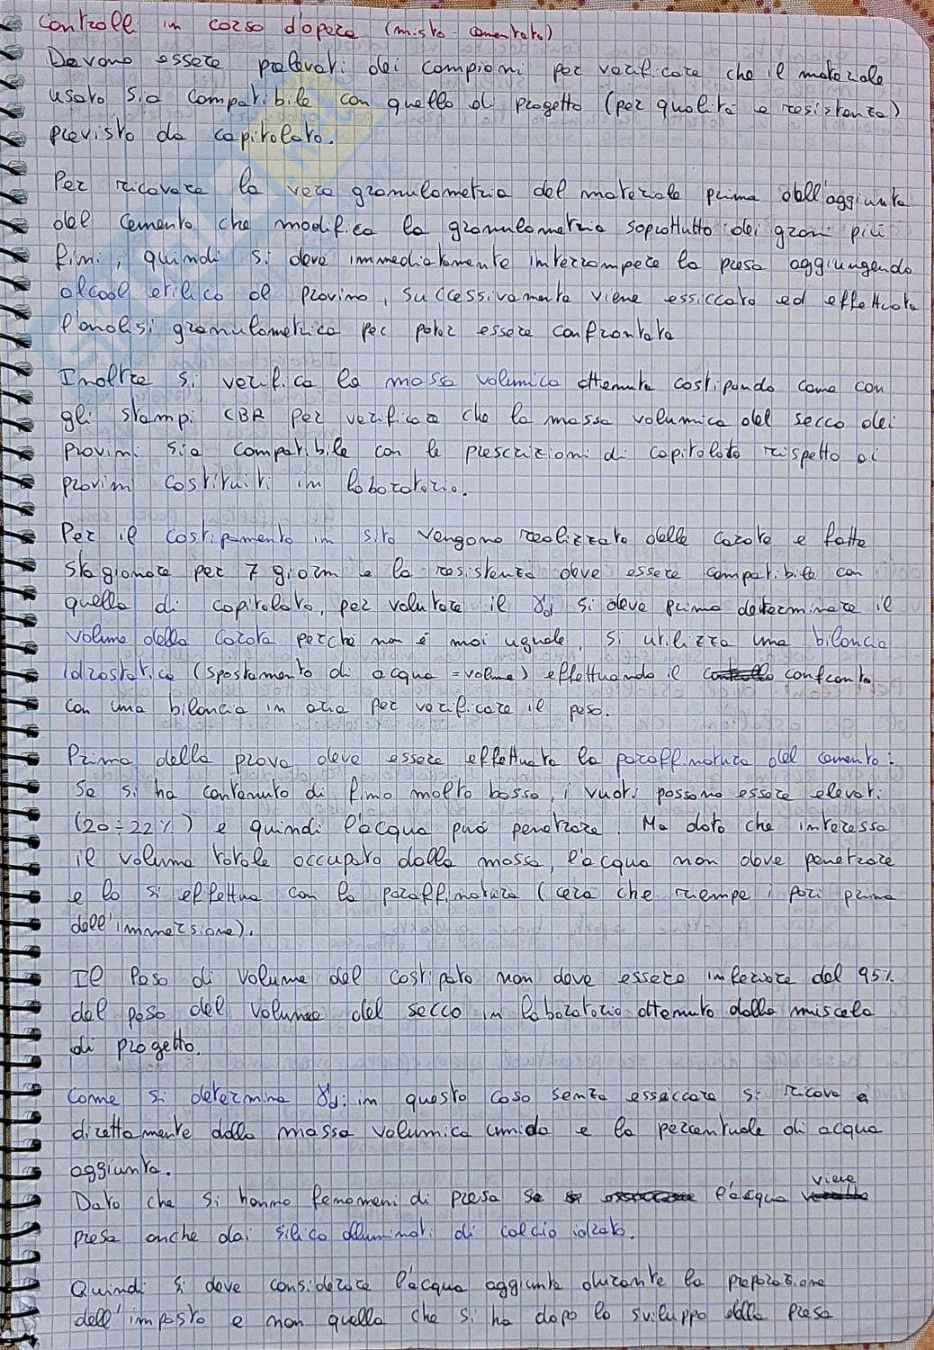 Controlli in corso d'opera (misto cementato)
Devono essere prelevati dei campioni per verificare che il materiale
usato sia compatibile con quello di progetto (per qualità e resistenza)
previsto da capitolato.
Per ricavare la vera granulometria del materiale prima dell'aggiunta
del cemento che modifica la granulometria soprattutto dei grani più
fini, quindi si deve immediatamente interrompere la presa aggiungendo
alcool etilico al provino, successivamente viene essiccato ed effettuata
l'analisi granulometrica per poter essere confrontata
Inoltre si verifica la massa volumica ottenuta costipando come con
gli stampi CBR per verificare che la massa volumica del secco dei
provini sia compatibile con le prescrizioni di capitolato rispetto ai
provini costituiti in laboratorio.
Per il costipamento in sito vengono realizzate delle carote e fatte
stagionare per 7 giorni e la resistenza deve essere compatibile con
quella di capitolato, per valutare il γd si deve prima determinare il
volume della carota perché non è mai uguale, si utilizza una bilancia
idrostatica (spostamento di acqua = volume) effettuando il confronto
con una bilancia in aria per verificare il peso.
Prima della prova deve essere effettuata la paraffinatura del cemento:
Se si ha contenuto di fino molto basso, i vuoti possono essere elevati
(20÷22%) e quindi l'acqua può penetrare. Ma dato che interessa
il volume totale occupato dalla massa, l'acqua non deve penetrare
e lo si effettua con la paraffinatura (cera che riempe i pori prima
dell'immersione).
Il Peso di volume del costipato non deve essere inferiore del 95%
del peso del volume del secco in laboratorio ottenuto dalla miscela
di progetto.
Come si determina γd: in questo caso senza essiccare si ricava
direttamente dalla massa volumica umida e la percentuale di acqua
aggiunta.
Dato che si hanno fenomeni di presa l'acqua viene
presa anche dai silico alluminati di calcio idrato.
Quindi si deve considerare l'acqua aggiunta durante la preparazione
dell'impasto e non quella che si ha dopo lo sviluppo della presa